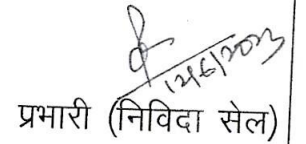 12/6/2023
प्रभारी (निविदा सेल)